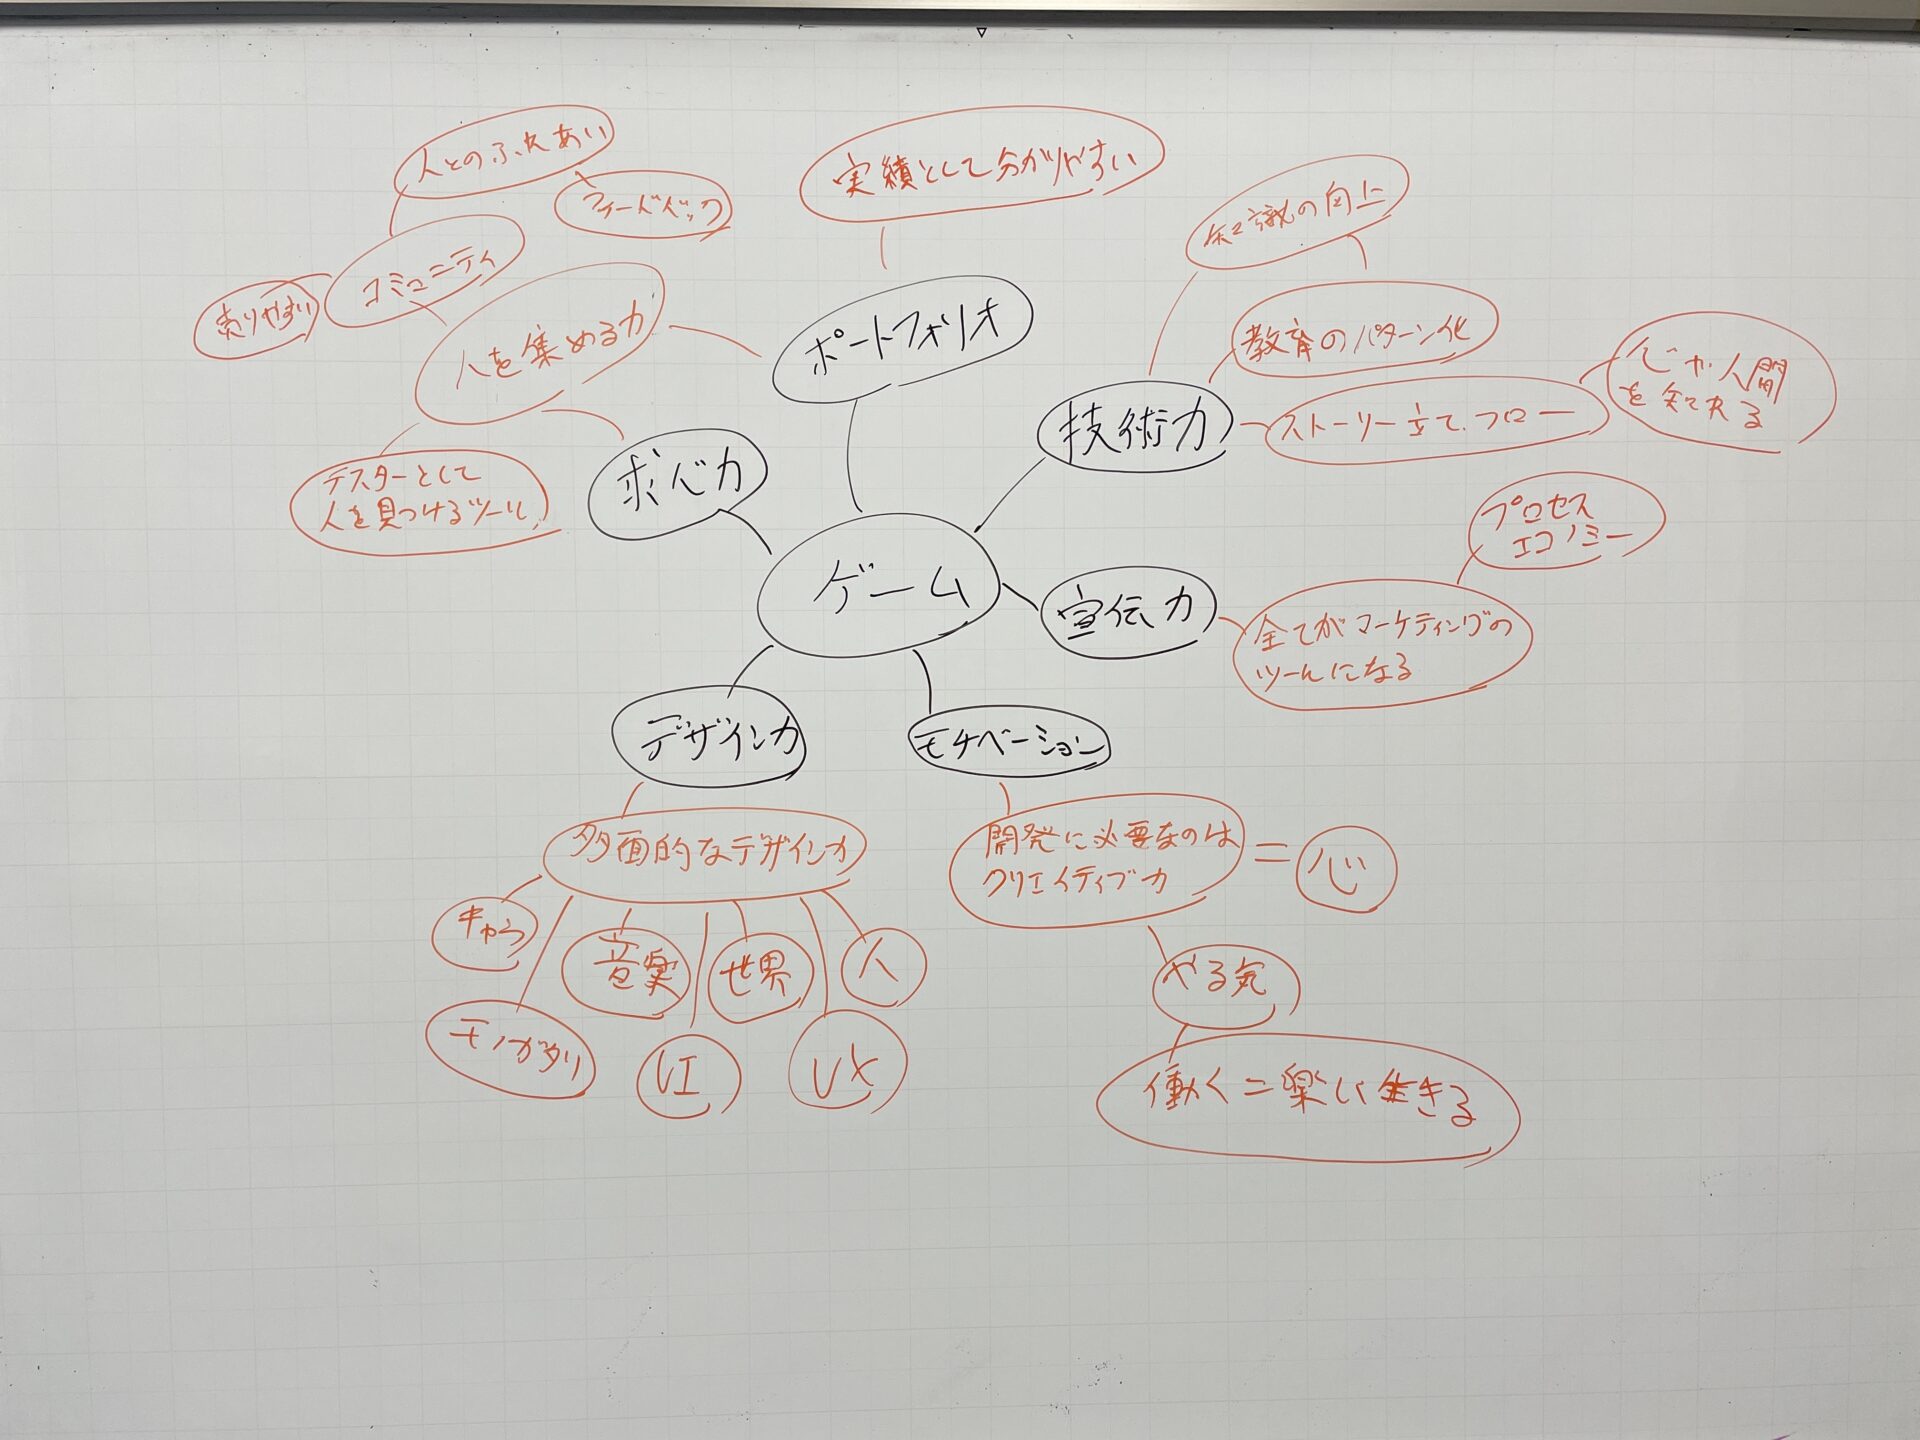 人とのふれあい
フィードバック
コミュニティ
売りやすい
人を集める力
テスターとして
人を見つけるツール
求心力
実績として分かりやすい
ポートフォリオ
知識の向上
教育のパターン化
技術力
ストーリー立て、フロー
心や人間
を知れる
ゲーム
プロセス
エコノミー
宣伝力
全てがマーケティングの
ツールになる
デザイン力
モチベーション
多面的なデザイン力
キャラ
モノガタリ
音楽
UI
世界
UX
人
開発に必要なのは
クリエイティブ力
=
心
やる気
働く=楽しい生きる